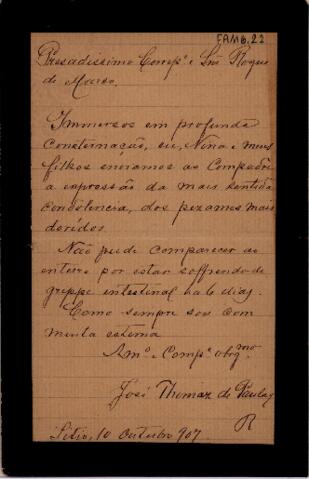 FAMB.22
Presadissimo Compe. e Snr. Roque
de Marco.
Immersos em profunda
consternação, eu, Nina e meus
filhos enviamos ao Compadre
a expressão da mais sentida
condolencia, dos pezames mais
devidos.
Não pude comparecer ao
enterro por estar soffrendo de
grippe intestinal ha 6 dias.
Como sempre sou com
muita estima
Amo. e Compe. obrgmo
José Thomaz de Paula
R
Sitio, 10 Outubro 907.